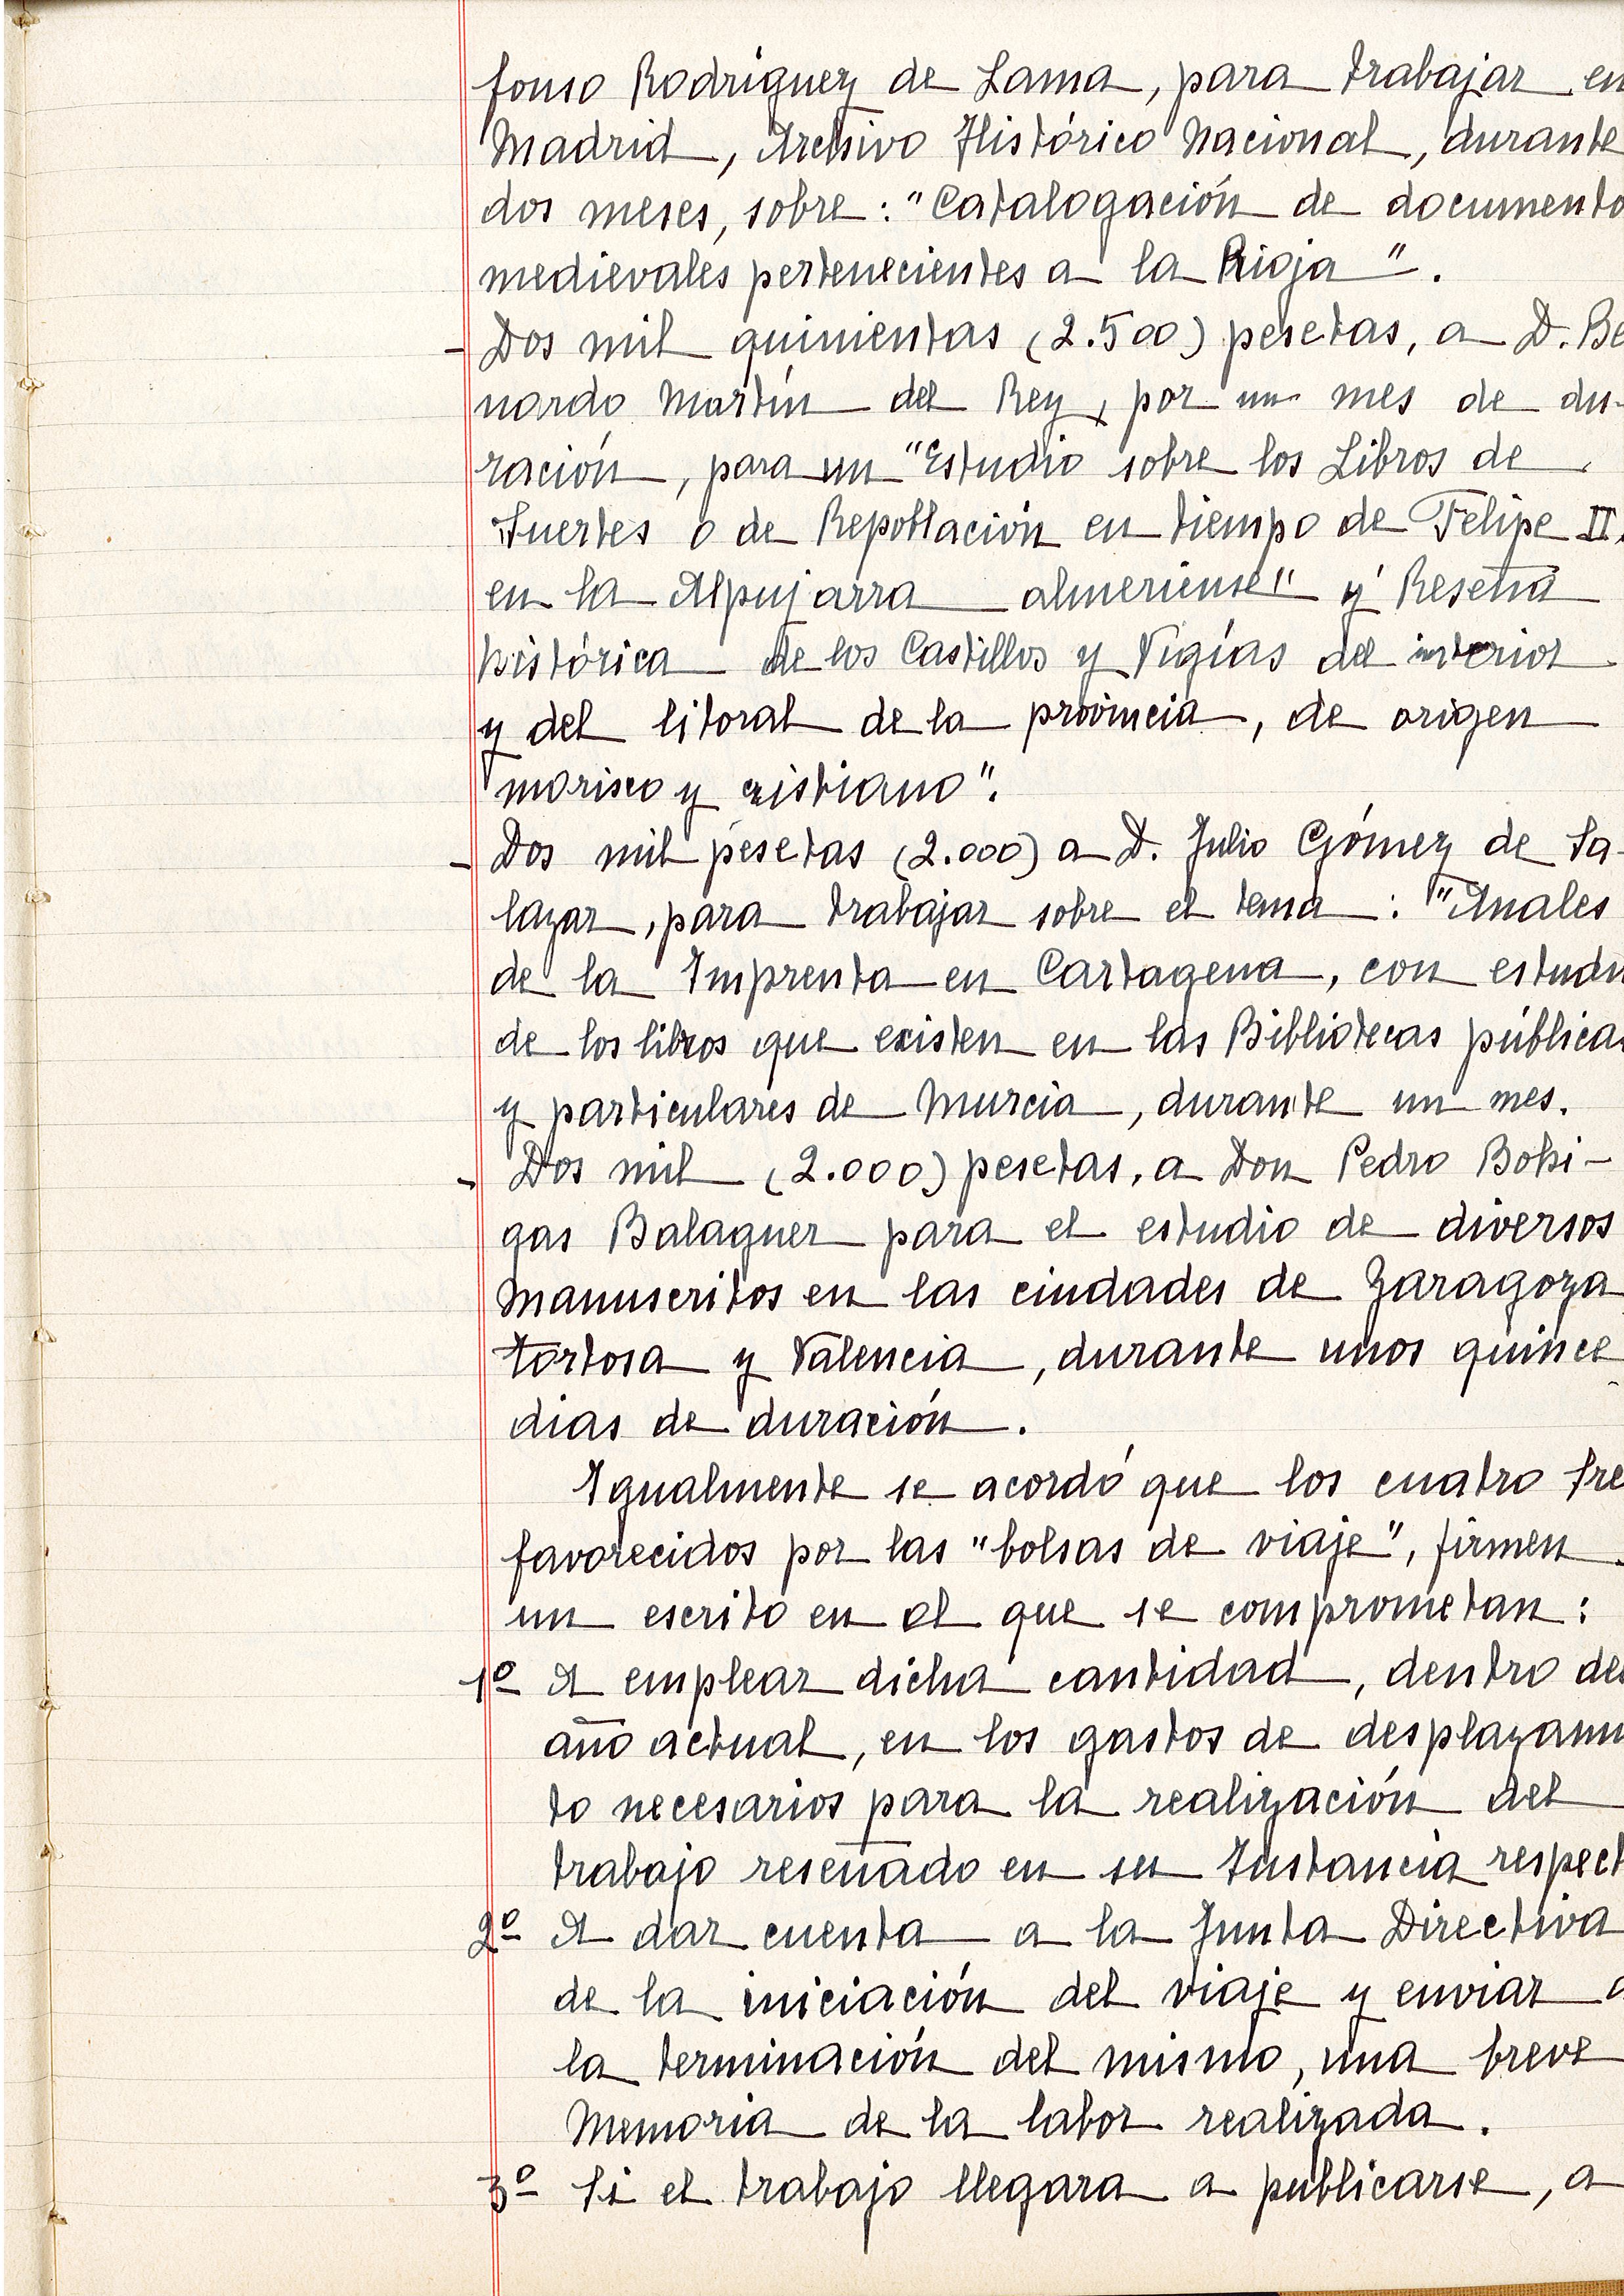 fonso Rodríguez de Lama, para trabajar en
Madrid, Archivo Histórico Nacional, durante
dos meses, sobre: "Catalogación de documento
medievales pertenecientes a la Rioja".
- Dos mil quinientas (2.500) pesetas, a D. Be
nardo Martín del Rey, por un mes de du-
ración, para un "Estudio sobre los Libros de
Suertes o de Repoblación en tiempo de Felipe II,
en la Alpujarra almeriense" y "Reseña
histórica de los Castillos y Vigías del interior
y del litoral de la provincia, de origen
morisco y cristiano".
- Dos mil pesetas (2.000) a D. Julio Gómez de Sa-
lazar, para trabajar sobre el tema: "Anales
de la Imprenta en Cartagena, con estudi
de los libros que existen en las Bibliotecas públicas
y particulares de Murcia, durante un mes.
- Dos mil (2.000) pesetas, a Don Pedro Bohi-
gas Balaguer para el estudio de diversos
manuscritos en las ciudades de Zaragoza
Tortosa y Valencia, durante unos quince
dias de duración.
Igualmente se acordó que los cuatro Sre
favorecidos por las "bolsas de viaje", firmen
un escrito en el que se comprometan:
1º A emplear dicha cantidad, dentro del
año actual, en los gastos de desplazami
to necesarios para la realización del
trabajo reseñado en su Instancia respect
2º A dar cuenta a la Junta Directiva
de la iniciación del viaje y enviar a
la terminación del mismo, una breve
Memoria de la labor realizada.
3º Si el trabajo llegara a publicarse, a